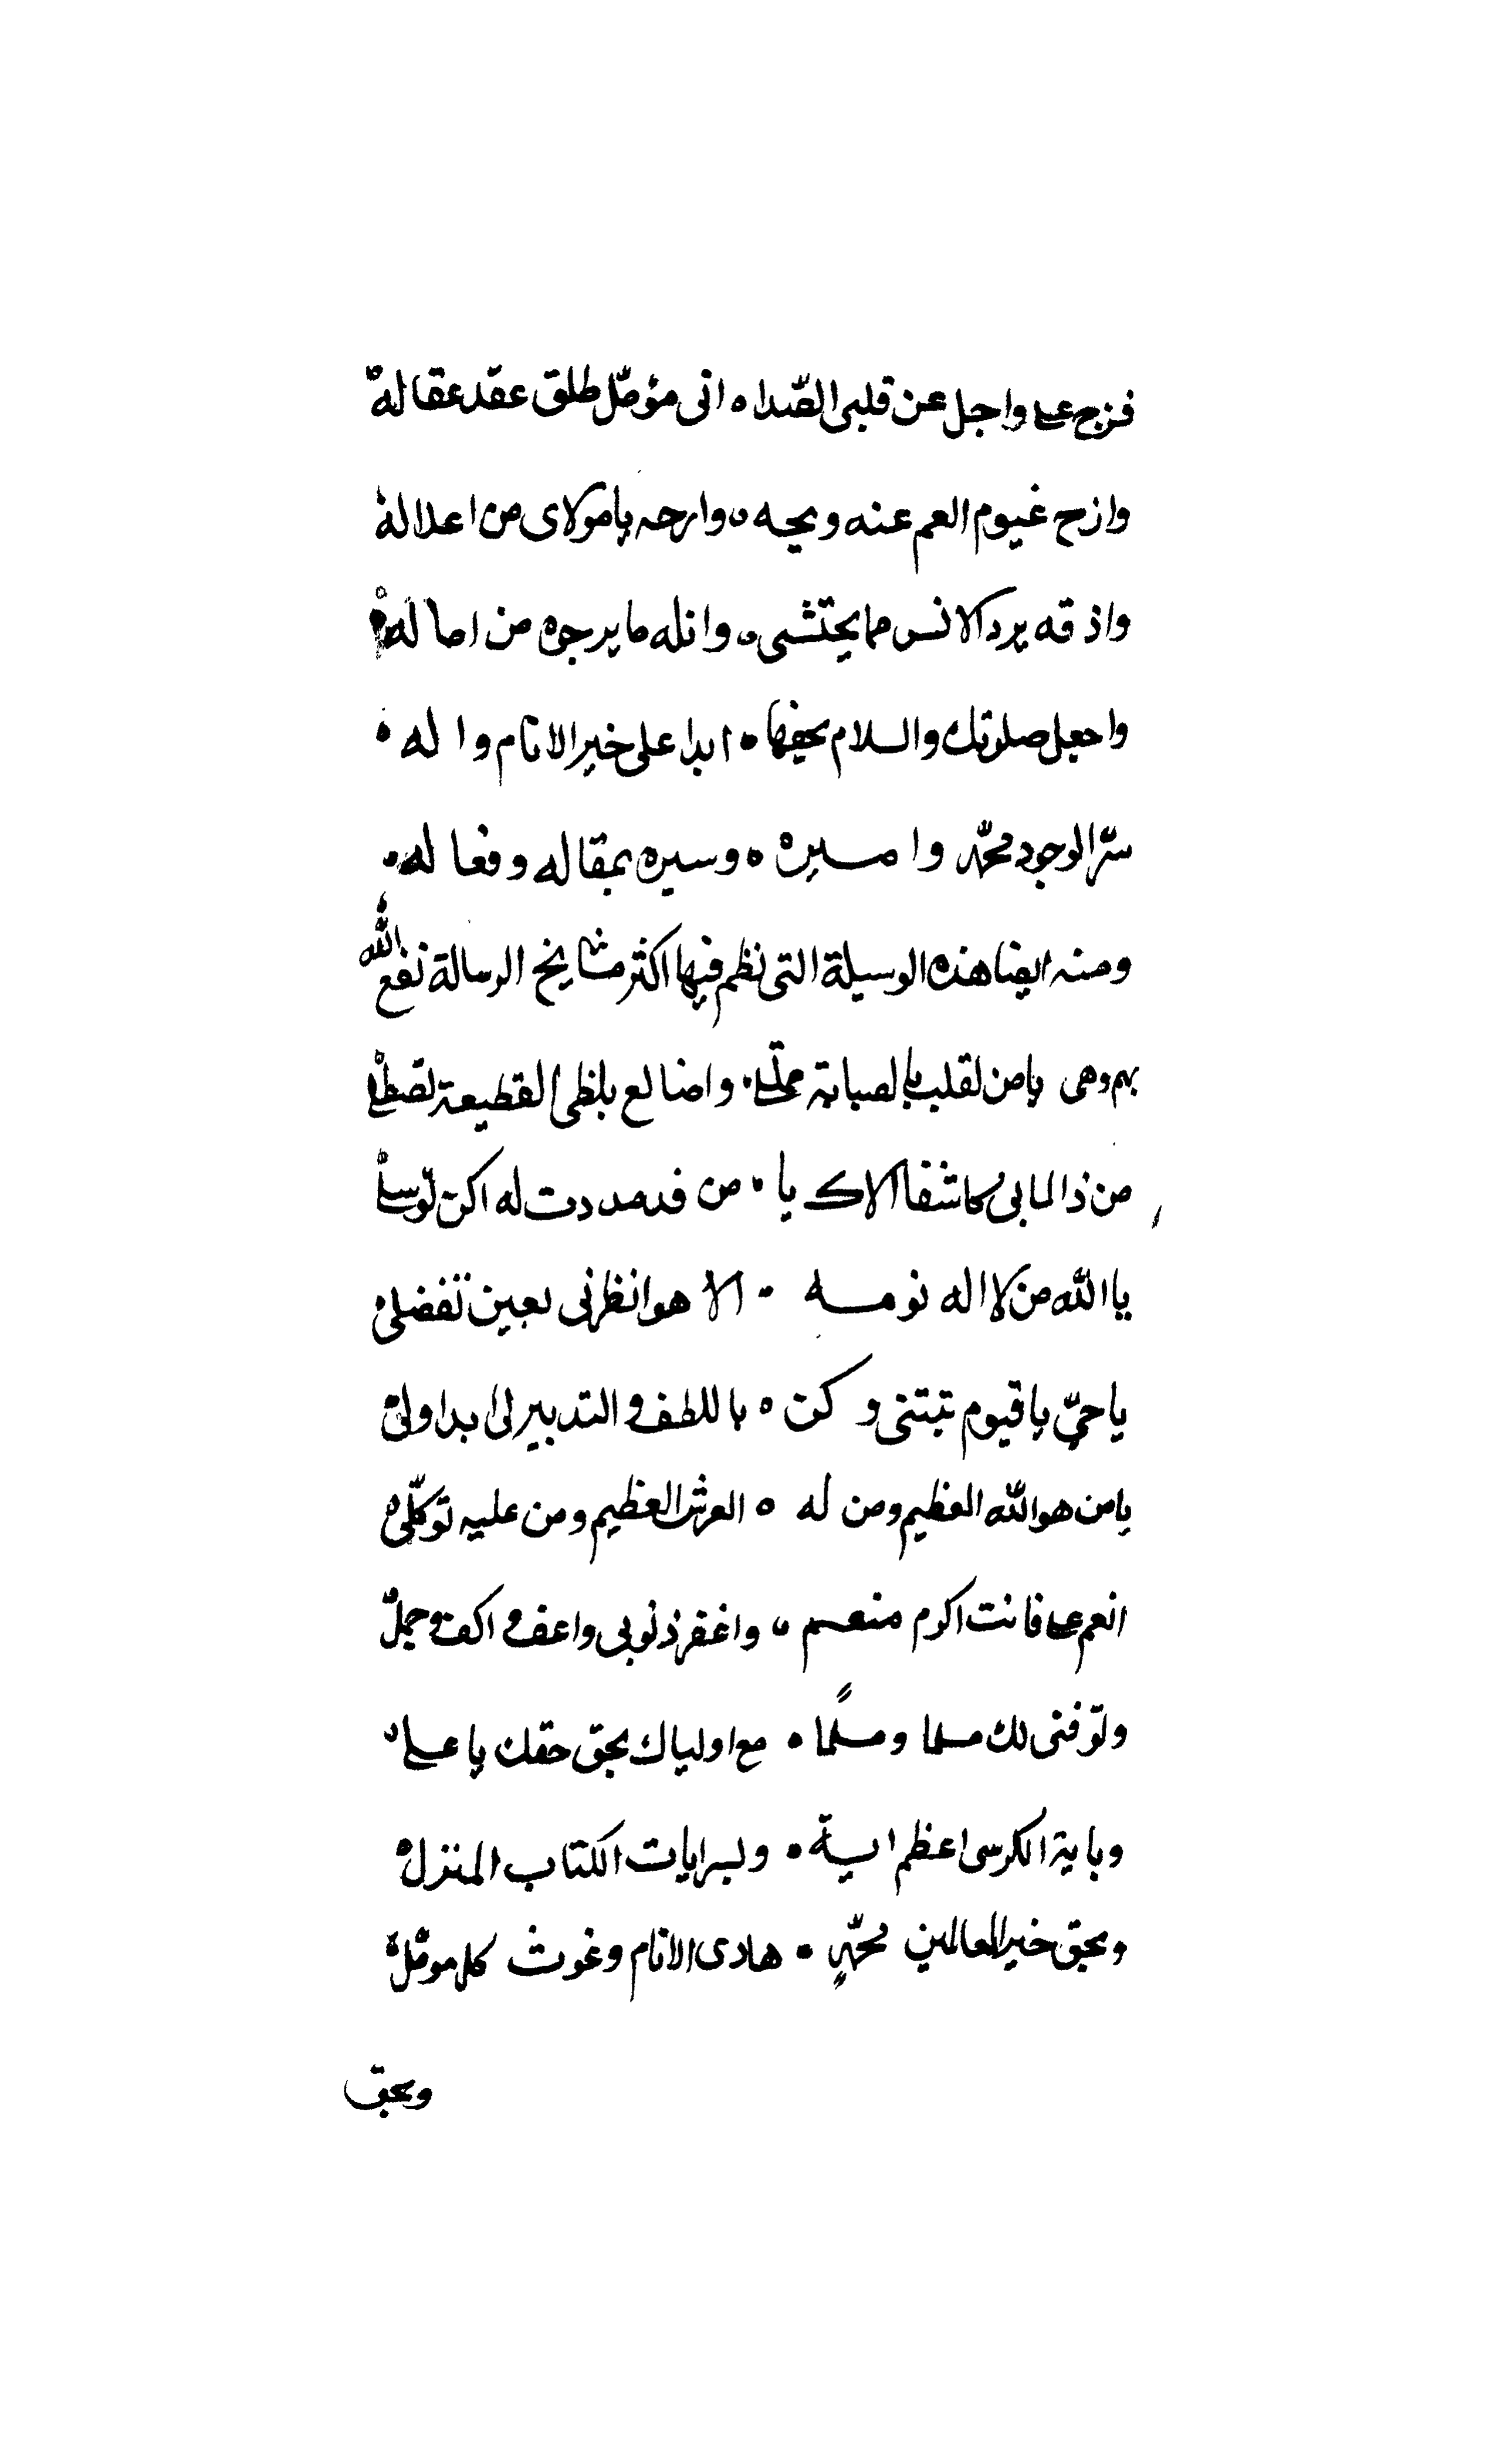 فرج على واجل عن قلبي الصّدا ۰ انى مؤمّل طلق عقد عقاله
وازح غيوم الغم عنه ونجه ۰ وارحه يا مولاى من اعلاله
واذقه برد الانس مما يختشى ۰ وانله ما يرجوه من اماله
واجعل صلوتك والسلام يحفها ۰ ابدا على خير الانام واله
سرّ الوجود محمّد وا مــيره ۰ وسيره بمقاله وفعاله
ومنه ايضا هذه الوسيلة التى نظم فيها اكثر مشايخ الرسالة نفع الله
بهم وهى يا من لقلب بالصبابة ممتلى ۰ واضالع بلظى القطيعة تصطلى
من ذا لما بى كاشفا الاك يا ۰ من قد مددت له اكف توسلى
يا الله من لا اله نومـه ۰ الا هو انظرنى بعين تفضلى
يا حىّ يا قيوم ثبتنى وكن ۰ باللطف والتدبير لى ابدا ولى
يا من هو الله العظيم ومن له ۰ العرش العظيم ومن عليه توكّلى
انعم على فانت اكرم منعـم ۰ واغفر ذنوبى واعف واكف وجمل
وتوّفنى لك مسلما ومسلّما ۰ مع اولياك بحق حقك يا على
وباية الكرسى اعظم اية ۰ وبسر ايات الكتاب المنزل
وبحق خير العالمين محمّدٍ ۰ هادى الانام وغوث كل مومّل
وبحق